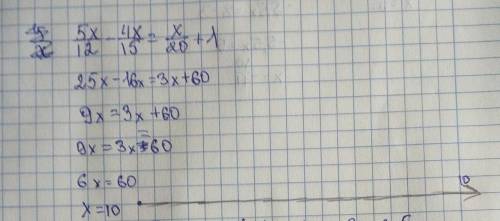 5/x 5x/12 - 4x/15 = x/20 + 1
25x-16x=3x+60
9x=3x+60
9x=3x=60
6x=60
x=10 10